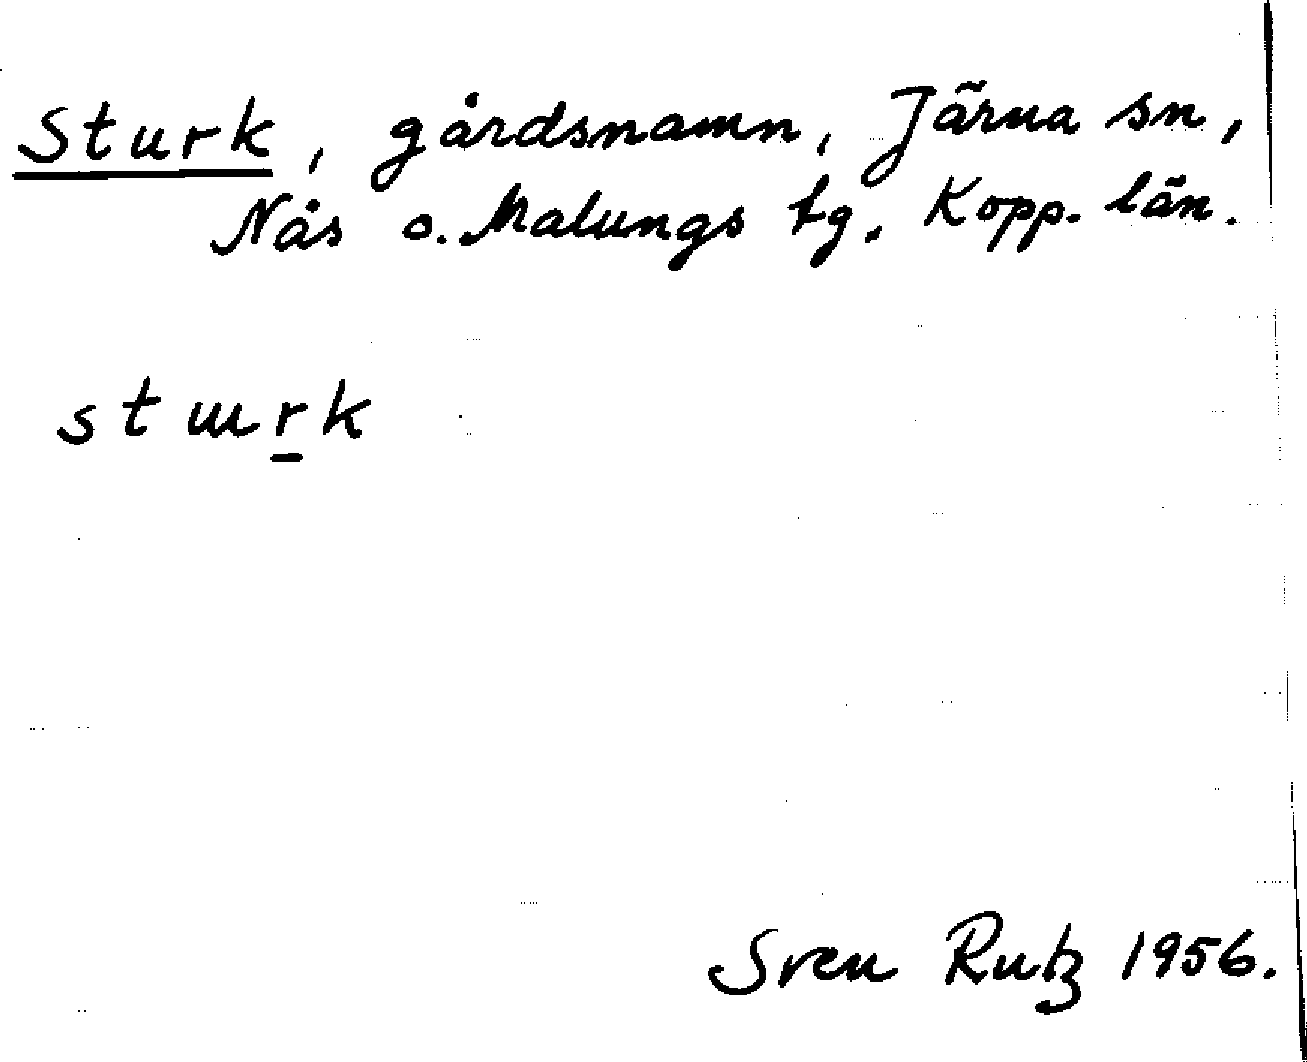 Sturk, gårdsnamn, Järna sn,
Nås o. Malungs tg. Kopp. län.
stɯrk
Sven Rutz 1956.